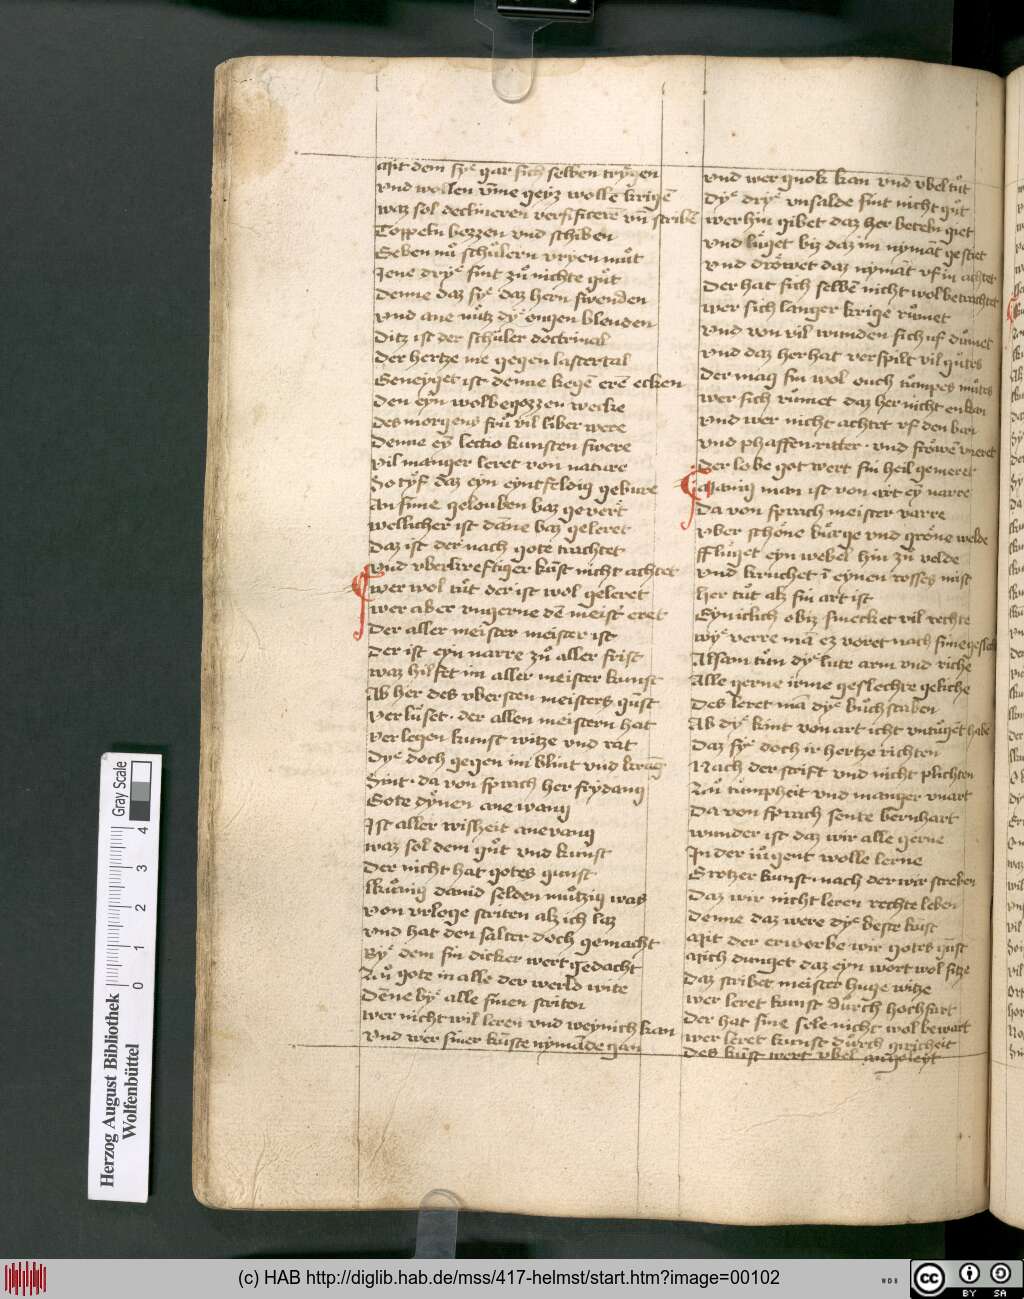 Mit dem sye gar sich selben trygen
vnd wollen vm̄e geyz wolle krigē
waz sol declineren versificerē vn̄ scribē
Toppeln bozzen vnd schiben
Geben nu schulern vryen mut
Jene drye sint zu nichte gut
denne daz sye daz hern swenden
vnd ane nutz dye ougen blenden
Ditz ist der schuler doctrinal
der hertze nie gegen lastertal
Geneyget ist denne kegē erē ecken
den eyn wolbegozzen wecke
des morgens fru vil liber were
denne ey lectio kunsten swere
vil manger leret von nature
So tyf daz eyn eyntfeldig gebure
an sime gelouben baz gevert
wellicher ist dāne baz geleret
daz ist der nach gote trachtet
vnd vberkreftiger kūst nicht achtet
wer wol tut der ist wol geleret
wer aber vngerne dē meistr eret
der aller meister meister ist
der ist eyn narre zu aller frist
waz hilfet im aller meister kunst
Ab her des vbersten meisters gūst
verluset · der allen meistern hat
verlegen kunst witze vnd rat
dye doch gegen im blint vnd krāg
Sint · da von sprach her frydang
Gote dynen ane wang
Jst aller wisheit anevang
waz sol dem gut vnd kunst
der nicht hat gotes gunst
kunig dauid selden muzig was
von vrloge striten alz ich laz
vnd hat den salter doch gemacht
By dem sin dicker wert gedacht
Zu gote in alle der werld wite
dēne by alle sinen striten
wer nicht wil leren vnd weynich kan
vnd wer siner kūste nymāde gan
vnd wer quok kan vnd vbel tut
dye drye vnsalde sint nicht gut
wer hin gibet daz her beteln get
vnd luget biz daz im nymāt gestet
vnd drowet daz nymāt vf in achtet
der hat sich selbē nicht wol betrachtet
wer sich langer krige rumet
vnd von vil wunden sich uf dumet
vnd daz her hat verspilt vil gutes
der mag sin wol ouch tumpes mutes
wer sich rumet daz her nicht enkan
vnd wer nicht achtet vf den ban
vnd phaffen ritter · vnd frowē vneret
der lobe got wert sin heil gemeret
Manig man ist von art ey narre
da von sprach meister varre
vber schone burge vnd grone welde
fluget eyn webel hin zu velde
vnd kruchet ī eynen rosses mist
her tut alz sin art ist
Eyn iclich obiz smecket vil rechte
wye verre mā ez voret nach sime geslechte
Alsam tun dye lute arm vnd riche
Alle gerne irme geslechte geliche
des leret mā dye buchstaben
Ab dye kint von art icht vntugēt habē
daz sye doch ir hertze richten
Nach der scrift vnd nicht plichten
Zu tumpheit vnd manger vnart
da von sprach sente bernhart
wunder ist daz wir alle gerne
Jn der iugent wolle lerne
Grozer kunst · nach der wir streben
daz wir nicht leren rechte leben
denne daz were dye beste kūst
Mit der erwerbe wir gotes gūst
Mich dunget daz eyn wort wol sitze
daz scribet meister huge witze
wer leret kunst durch hochfart
der hat sine sele nicht wol bewart
wer leret kunst durch gyricheit
des kūst wert vbel angeleyt
Gray Scale
Herzog August Bibliothek
Wolfenbüttel
0 1 2 3 4
(c) HAB http://diglib.hab.de/mss/417-helmst/start.htm?image=00102
WDB
cc BY SA